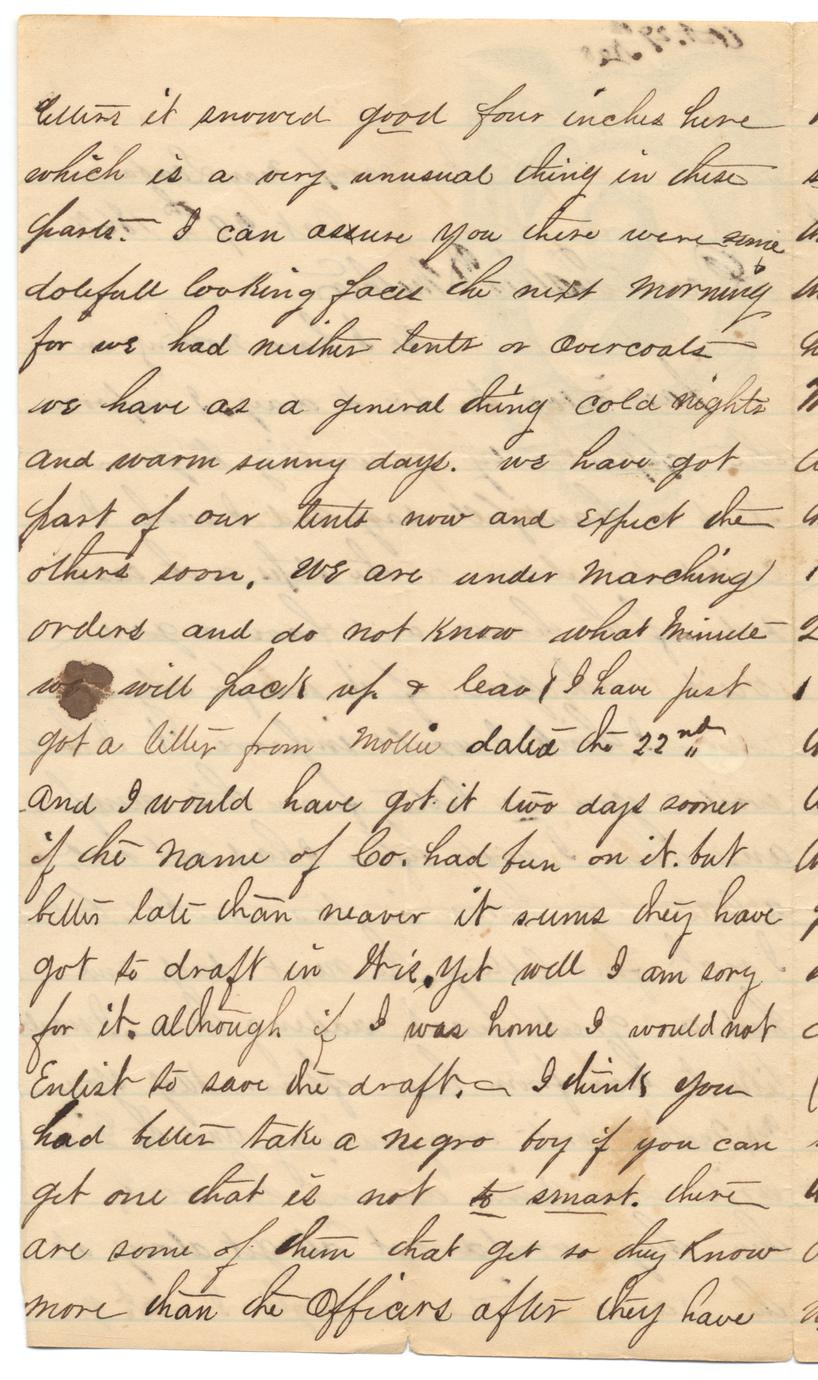 letters it snowed good four inches here
which is a very unusual thing in these
parts. I can assure you there were some
dolefull looking faces the next morning
for we had neither tents or Overcoats
we have as a general thing cold nights
and warm sunny days. we have got
part of our tents now and Expect the
others soon. WE are under Marching
orders and do not Know what Minute
we will pack up & leav I have just
got a letter from Mollie dated the 22nd
and I would have got it two days sooner
if the Name of Co. had been on it. but
better late than neaver it seems they have
got to draft in Wis. yet well I am sory
for it. although if I was home I would not
Enlist to save the draft. I think you
had better take a Negro boy if you can
get one that is not to smart. there
are some of them that get so they Know
more than the Officers after they have